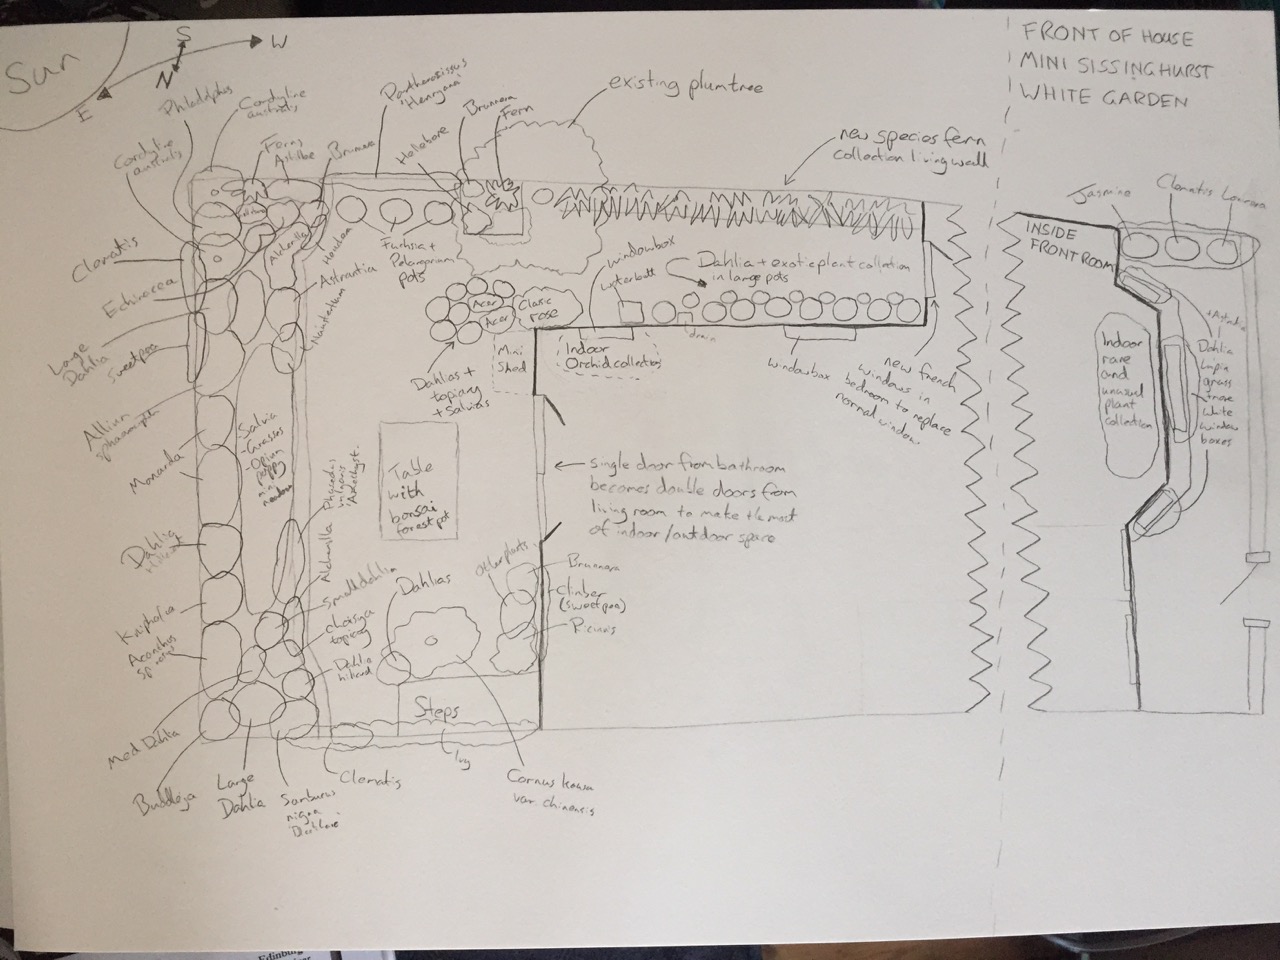 Sun
S
W
N
E
FRONT OF HOUSE
MINI SISSINGHURST
WHITE GARDEN
Philadelphus
Cordyline
australis
Cordyline
australis
Ferns
Astilbe
Brunnera
Hellebore
Brunnera
Fern
existing plumtree
new species fern
collection living wall
Fuchsia +
Pelargonium
pots
Clematis
Echinacea
Large
Dahlia
Sweetpea
Allium
Monarda
Dahlia
Kniphofia
Acanthus
Med Dahlia
Buddleja
Large
Dahlia
Sambucus
nigra
Clematis
Ivy
Cornus kousa
var. chinensis
Steps
Alchemilla
Astrantia
- Salvia
- Grasses
- Opium
poppy
Alchemilla
Small dahlia
choisya
topiary
Dahlia
Dahlias
other plants
Brunnera
Climber
(sweetpea)
Ricinus
Table
with
bonsai
forest pot
Acer
Acer
Classic
rose
Dahlias +
topiary
+ Salvias
Mini
Shed
Indoor
Orchid collection
windowbox
waterbutt
drain
Dahlia + exotic plant collection
in large pots
windowbox
new french
windows in
bedroom to replace
normal window.
single door from bathroom
becomes double doors from
living room to make the most
of indoor/outdoor space
INSIDE
FRONT ROOM
Jasmine
Clematis
Indoor
rare
and
unusual
plant
collection
Dahlia
Lupin
grass
more
white
window
boxes